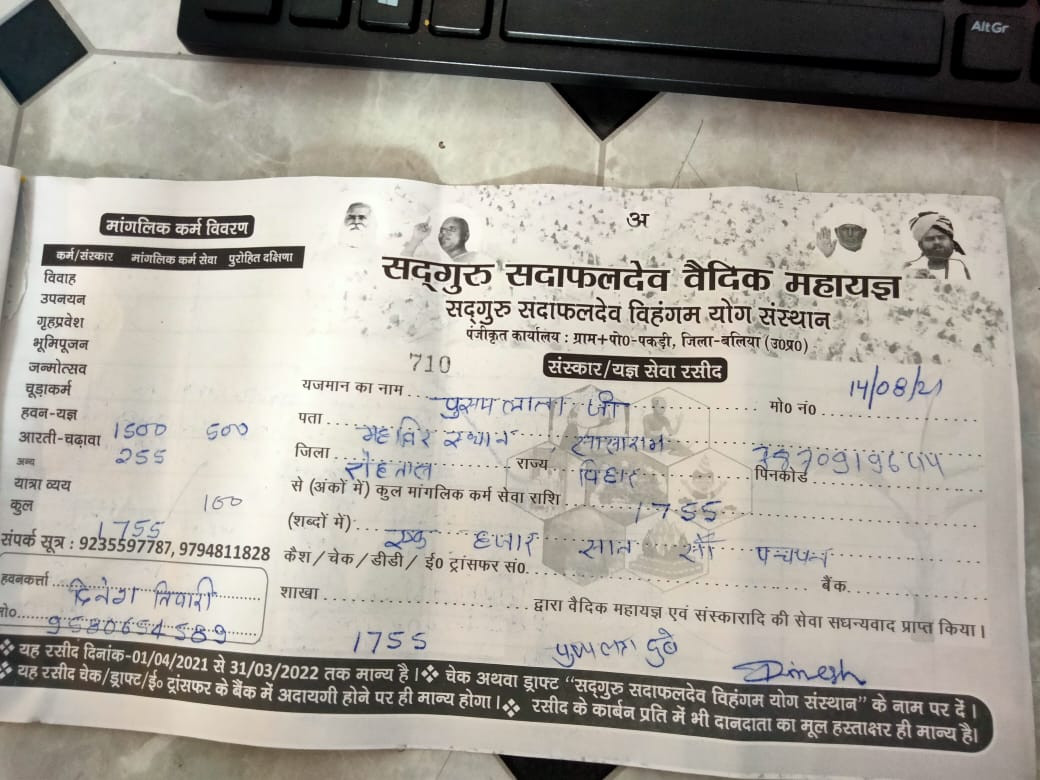 AltGr
मांगलिक कर्म विवरण
कर्म/संस्कार मांगलिक कर्म सेवा पुरोहित दक्षिणा
विवाह
उपनयन
गृहप्रवेश
भूमिपूजन
जन्मोत्सव
चूड़ाकर्म
हवन-यज्ञ 1500 500
आरती-चढ़ावा 255
अन्य
यात्रा व्यय 100
कुल 1755
संपर्क सूत्र : 9235597787, 9794811828
हवनकर्त्ता दिनेश तिवारी
मो० 9580654589
अ
सद्गुरु सदाफलदेव वैदिक महायज्ञ
सद्गुरु सदाफलदेव विहंगम योग संस्थान
पंजीकृत कार्यालय : ग्राम+पो०-पकड़ी, जिला-बलिया (उ०प्र०)
710 संस्कार/यज्ञ सेवा रसीद
14/08/21
यजमान का नाम जी मो० नं०
पता स्थान
जिला राज्य बिहार पिनकोड
से (अंकों में) कुल मांगलिक कर्म सेवा राशि 1755
(शब्दों में) एक हजार सात सौ पच्चपन
कैश/चेक/डीडी/ई० ट्रांसफर सं० बैंक
शाखा द्वारा वैदिक महायज्ञ एवं संस्कारादि की सेवा सधन्यवाद प्राप्त किया।
1755 Dinesh
❖ यह रसीद दिनांक-01/04/2021 से 31/03/2022 तक मान्य है। ❖ चेक अथवा ड्राफ्ट “सद्गुरु सदाफलदेव विहंगम योग संस्थान” के नाम पर दें।
❖ यह रसीद चेक/ड्राफ्ट/ई० ट्रांसफर के बैंक में अदायगी होने पर ही मान्य होगा। ❖ रसीद के कार्बन प्रति में भी दानदाता का मूल हस्ताक्षर ही मान्य है।